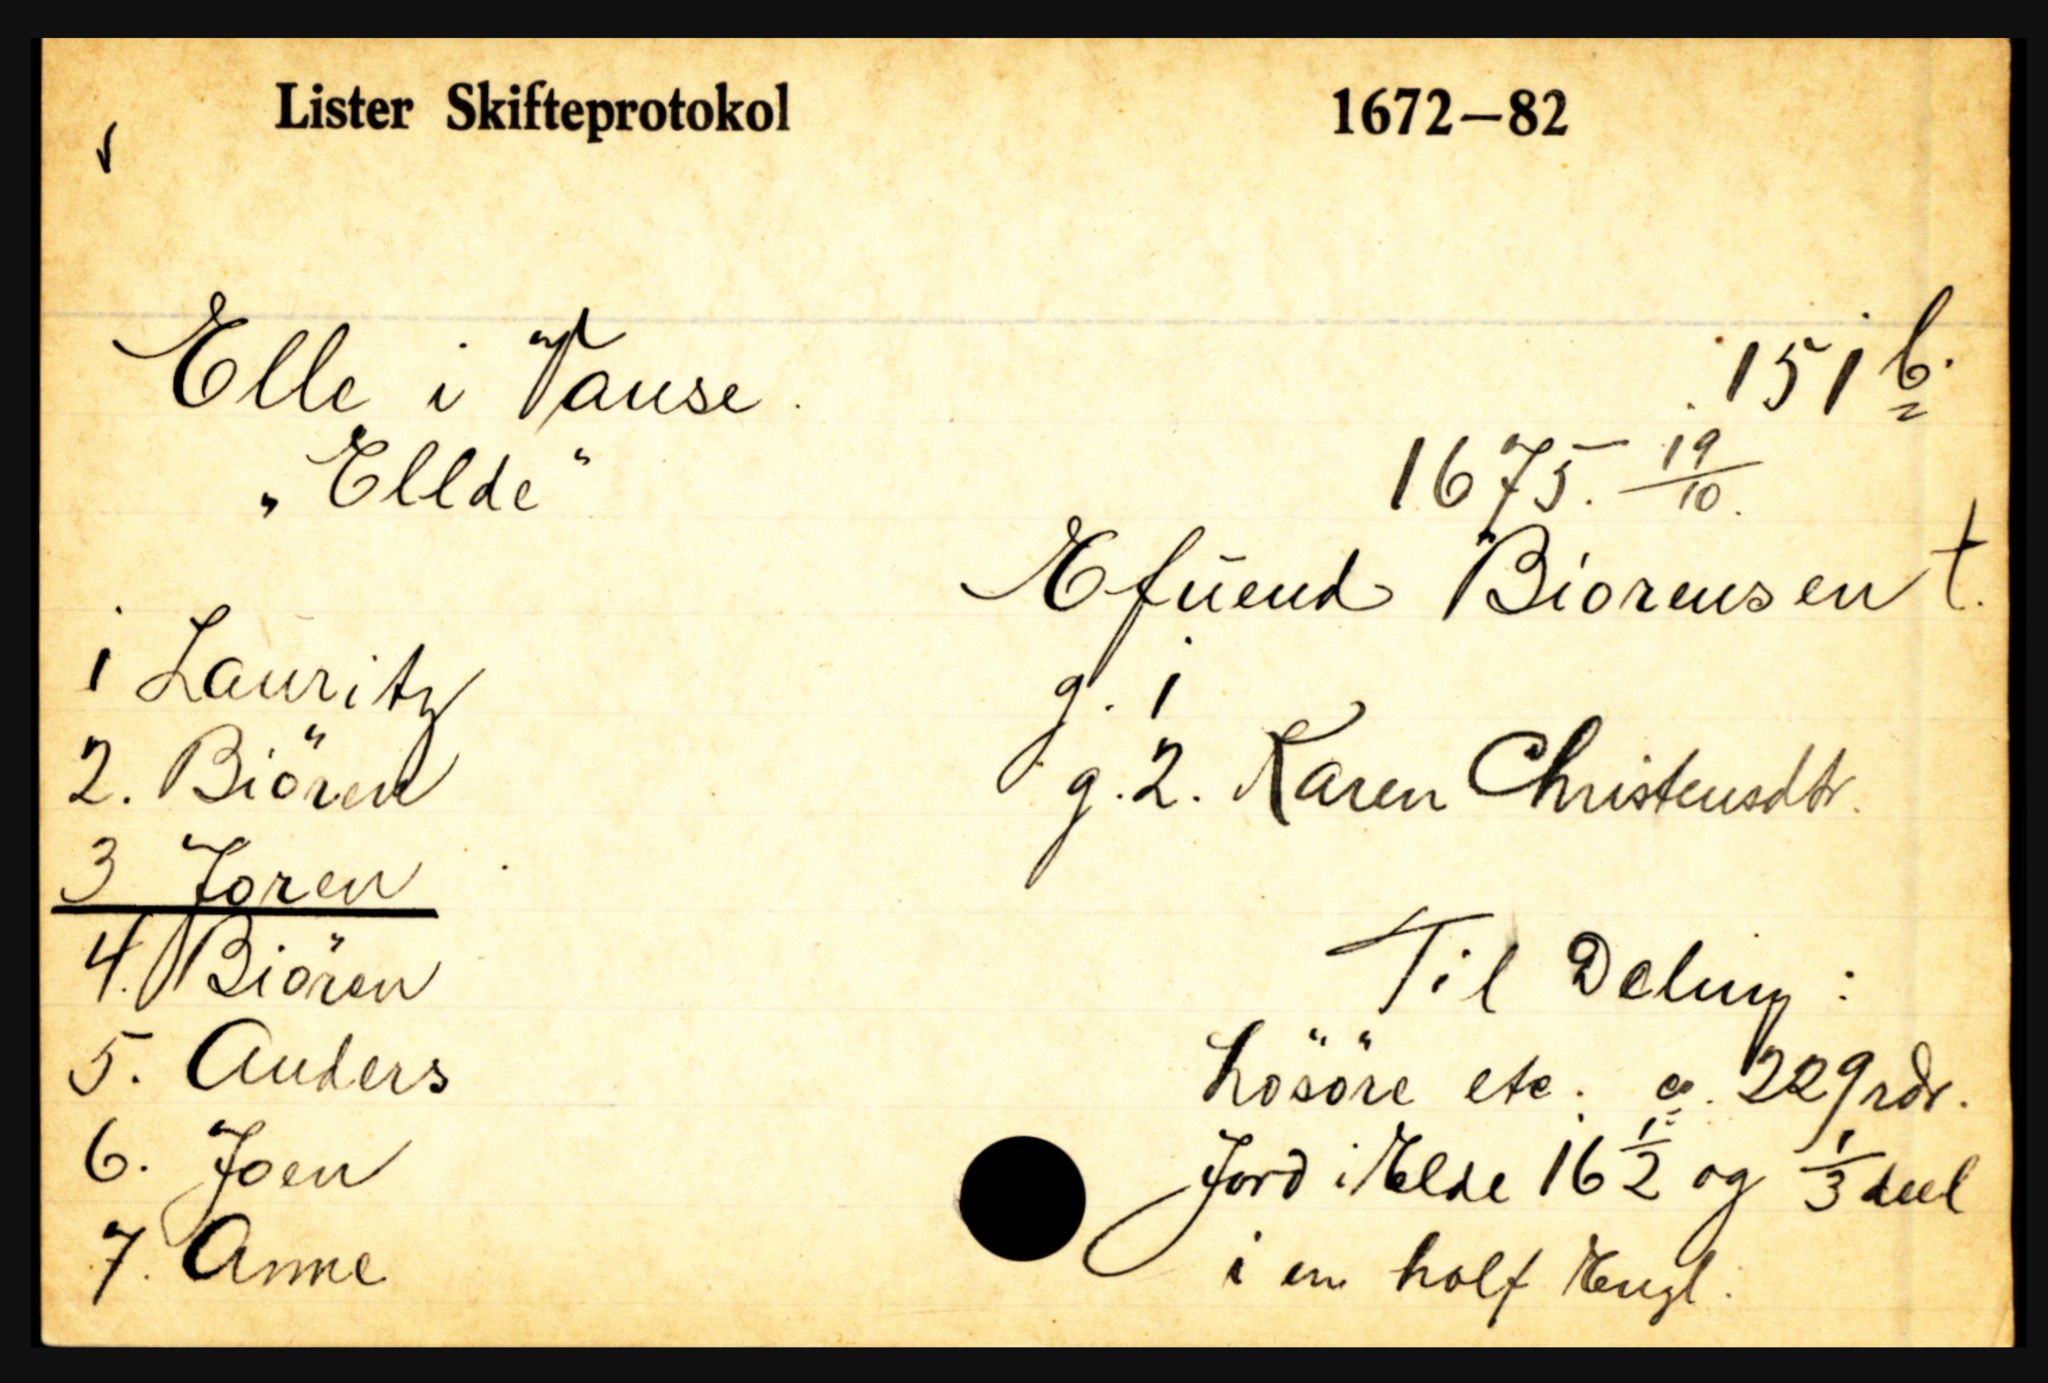 Lister Skifteprotokol 1672–82
Elle i Vanse. 151 b.
"Ellde" 1675. 19/10.
Efuend Biorensen †.
1 Lauritz g. 1
2. Biören g. 2. Karen Christensdtr.
3 Joren
4. Biören Til Deling:
5. Anders Lösöre etc. 229 rdr.
6. Joen Jord i Elde 16 1/2 og 1/3 deel
7. Anne i en holf Engl.